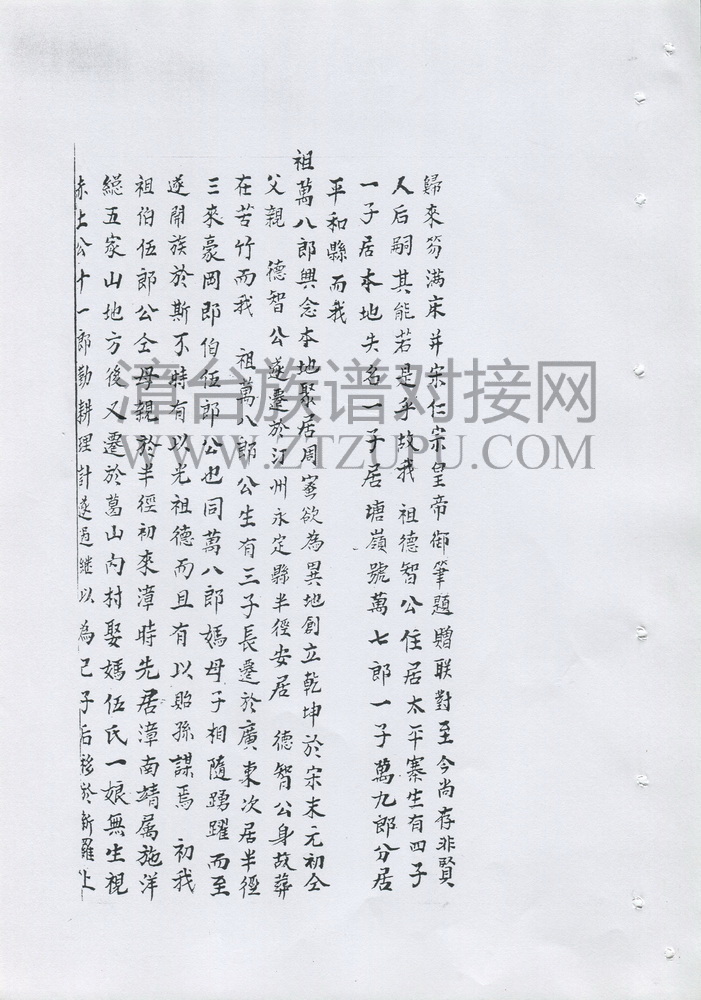 歸來笏滿床并宋仁宗皇帝御筆題贈联對至今尚存非賢
人后嗣其能若是乎故我 祖德智公住居太平寨生有四子
一子居本地失名一子居塘嶺號萬七郎一子萬九郎分居
平和縣而我
祖萬八郎興念本地聚居周密欲為異地創立乾坤於宋末元初仝
父親 德智公遂遷於汀州永定縣半徑安居 德智公身故葬
在苦竹而我 祖萬八郎公生有三子長遷於廣東次居半徑
三來豪岡郎伯伍郎公也同萬八郎媽母子相隨踴躍而至
遂開族於斯不特有以光祖德而且有以貽孫謀焉 初我
祖伯伍郎公仝母親於半徑初來漳時先居漳南靖属施洋
縂五家山地方後又遷於葛山内村娶媽伍氏一娘無生視
赤土公十一郎勤耕理計遂過継以為己子后移於新羅上
漳台族谱对接网
WWW.ZTZUPU.COM